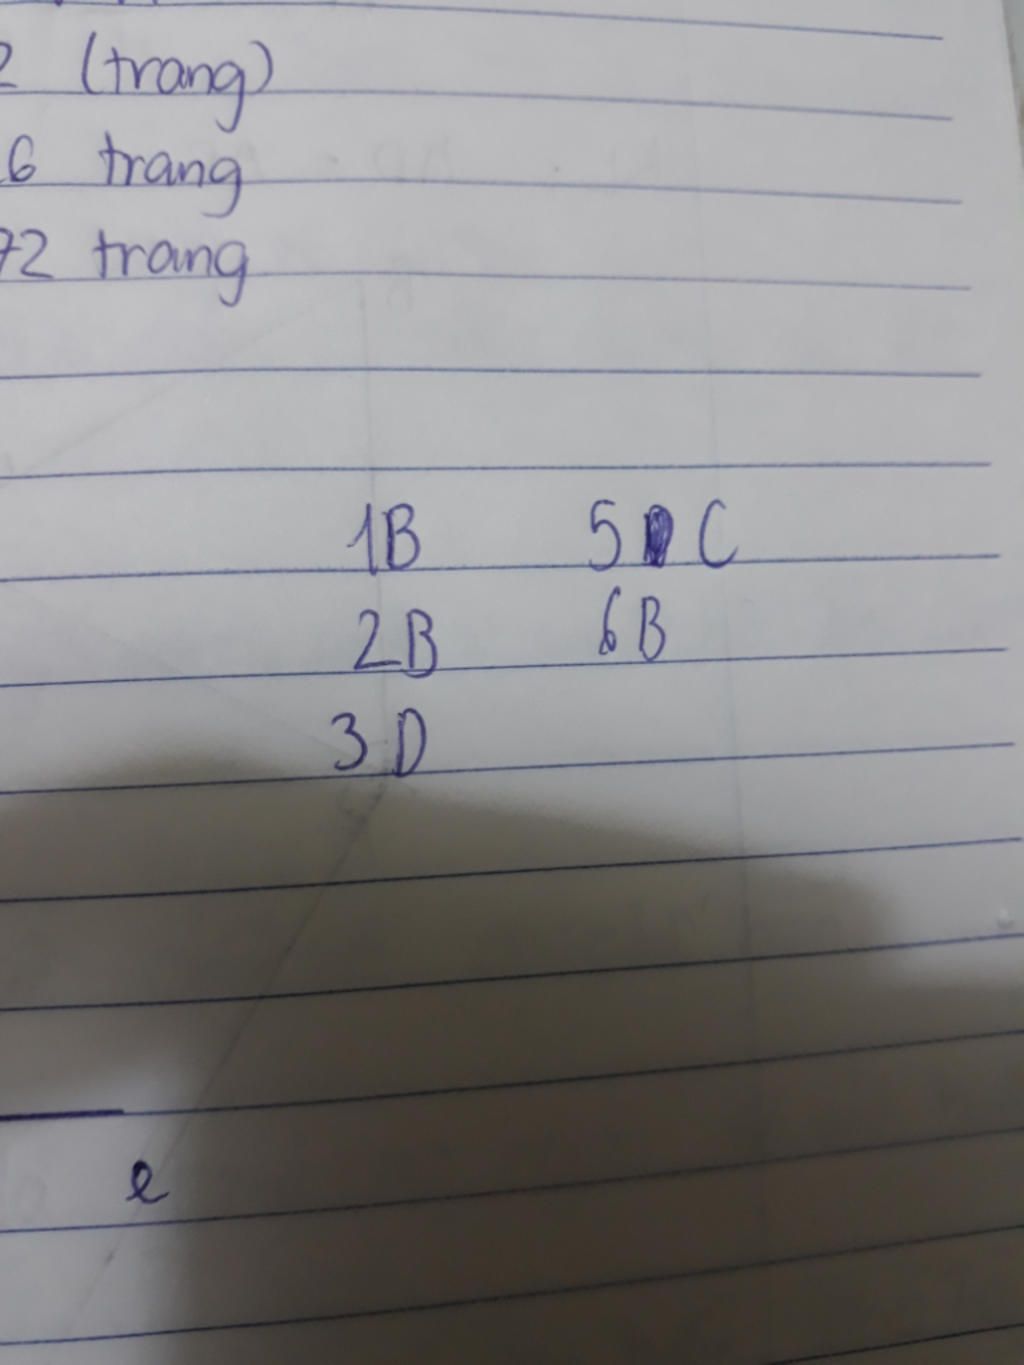 2 (trang)
6 trang
72 trang
1B 5 C
2B 6B
3 D
e